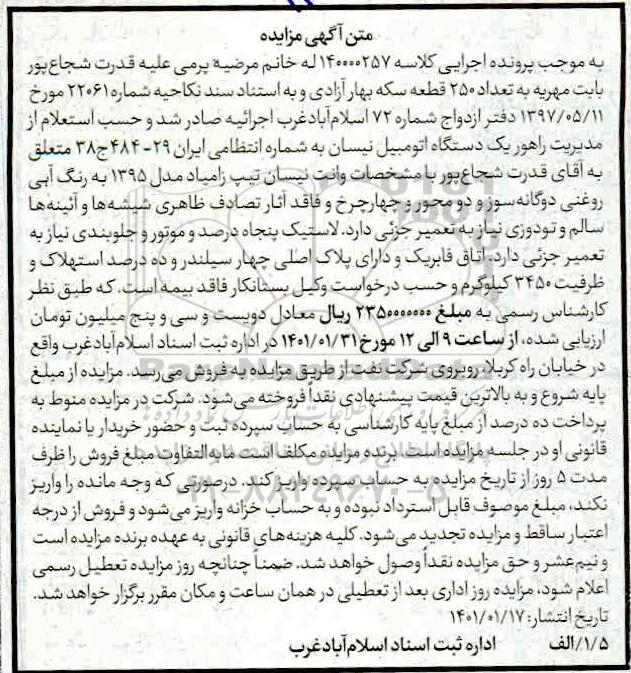 متن آگهی مزایده
به موجب پرونده اجرایی کلاسه ۱۴۰۰۰۰۲۵۷ له خانم مرضیه پرمی علیه قدرت شجاع‌پور
بابت مهریه به تعداد ۲۵۰ قطعه سکه بهار آزادی و به استناد سند نکاحیه شماره ۲۲۰۶۱ مورخ
۱۳۹۷/۰۵/۱۱ دفتر ازدواج شماره ۷۲ اسلام‌آبادغرب اجرائیه صادر شد و حسب استعلام از
مدیریت راهور یک دستگاه اتومبیل نیسان به شماره انتظامی ایران ۲۹-۴۸۴ج۳۸ متعلق
به آقای قدرت شجاع‌پور با مشخصات وانت نیسان تیپ زامیاد مدل ۱۳۹۵ به رنگ آبی
روغنی دوگانه‌سوز و دو محور و چهارچرخ و فاقد آثار تصادف ظاهری شیشه‌ها و آئینه‌ها
سالم و تودوزی نیاز به تعمیر جزئی دارد. لاستیک پنجاه درصد و موتور و جلوبندی نیاز به
تعمیر جزئی دارد. اتاق فابریک و دارای پلاک اصلی چهار سیلندر و ده درصد استهلاک و
ظرفیت ۳۴۵۰ کیلوگرم و حسب درخواست وکیل بستانکار فاقد بیمه است، که طبق نظر
کارشناس رسمی به مبلغ ۲۳۵۰۰۰۰۰۰۰ ریال معادل دویست و سی و پنج میلیون تومان
ارزیابی شده، از ساعت ۹ الی ۱۲ مورخ ۱۴۰۱/۰۱/۳۱ در اداره ثبت اسناد اسلام‌آبادغرب واقع
در خیابان راه کربلا، روبروی شرکت نفت از طریق مزایده به فروش می‌رسد. مزایده از مبلغ
پایه شروع و به بالاترین قیمت پیشنهادی نقداً فروخته می‌شود. شرکت در مزایده منوط به
پرداخت ده درصد از مبلغ پایه کارشناسی به حساب سپرده ثبت و حضور خریدار یا نماینده
قانونی او در جلسه مزایده است. برنده مزایده مکلف است مابه‌التفاوت مبلغ فروش را ظرف
مدت ۵ روز از تاریخ مزایده به حساب سپرده واریز کند. درصورتی که وجه مانده را واریز
نکند، مبلغ موصوف قابل استرداد نبوده و به حساب خزانه واریز می‌شود و فروش از درجه
اعتبار ساقط و مزایده تجدید می‌شود. کلیه هزینه‌های قانونی به عهده برنده مزایده است
و نیم‌عشر و حق مزایده نقداً وصول خواهد شد. ضمناً چنانچه روز مزایده تعطیل رسمی
اعلام شود، مزایده روز اداری بعد از تعطیلی در همان ساعت و مکان مقرر برگزار خواهد شد.
تاریخ انتشار: ۱۴۰۱/۰۱/۱۷
۱/۵/الف اداره ثبت اسناد اسلام‌آبادغرب